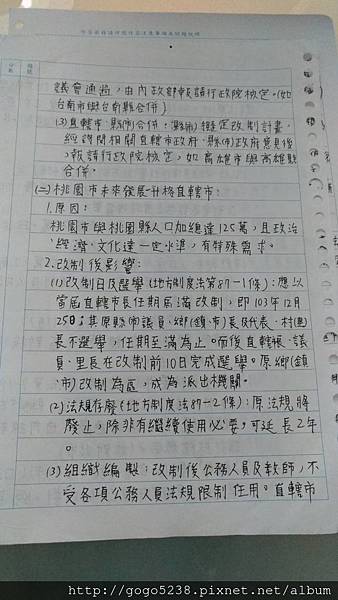 議會通過，由內政部報請行政院檢定。(如
台南市與台南縣合併)
(3)直轄市、縣(市)合併。縣(市)擬定改制計畫，
經詢問相關直轄市政府、縣(市)政府意見後
，報請行政院檢定，如高雄市與高雄縣
合併。
(二)桃園市未來發展-升格直轄市：
1.原因：
桃園市與桃園縣人口加總達125萬，且政治
、經濟、文化達一定水準，有特殊需求。
2.改制後影響：
(1)改制日及選舉(地方制度法第87-1條)：應以
當屆直轄市長任期屆滿改制，即103年12月
25日；其原縣(市)議員、鄉(鎮、市)長及代表、村(里)
長不選舉，任期至滿為止。而後直轄市長、議
員、里長在改制前10日完成選舉。原鄉(鎮
、市)改制為區，成為派出機關。
(2)法規存廢(地方制度法87-2條)：原法規將
廢止，除非有繼續使用必要，可延長2年
。
(3)組織編製：改制後公務人員及教師，不
受各項公務人員法規限制任用。直轄市
http://gogo5238.pixnet.net/album